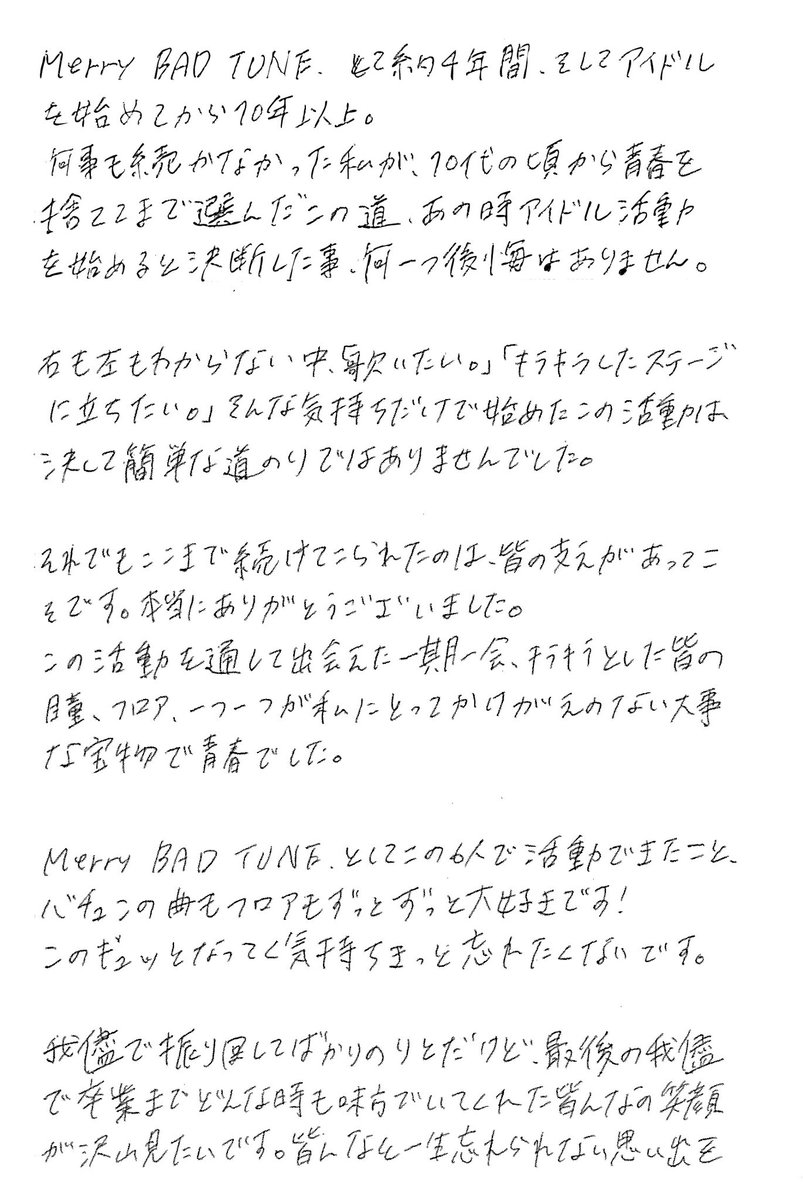 Merry BAD TUNE. として約4年間、そしてアイドル
を始めてから10年以上。
何事も続かなかった私が、10代の頃から青春を
捨ててまで選んだこの道、あの時アイドル活動
を始めると決断した事、何一つ後悔はありません。
右も左もわからない中、「歌いたい。」「キラキラしたステージ
に立ちたい。」そんな気持ちだけで始めたこの活動は
決して簡単な道のりではありませんでした。
それでもここまで続けてこられたのは、皆の支えがあってこ
そです。本当にありがとうございました。
この活動を通して出会えた一期一会、キラキラとした皆の
瞳、フロア、一つ一つが私にとってかけがえのない大事
な宝物で青春でした。
Merry BAD TUNE. としてこの6人で活動できたこと、
バチュンの曲もフロアもずっとずっと大好きです!
このギュッとなってく気持ちきっと忘れたくないです。
我儘で振り回してばかりのりとだけど、最後の我儘
で卒業までどんな時も味方でいてくれた皆んなの笑顔
が沢山見たいです。皆んなと一生忘れられない思い出を